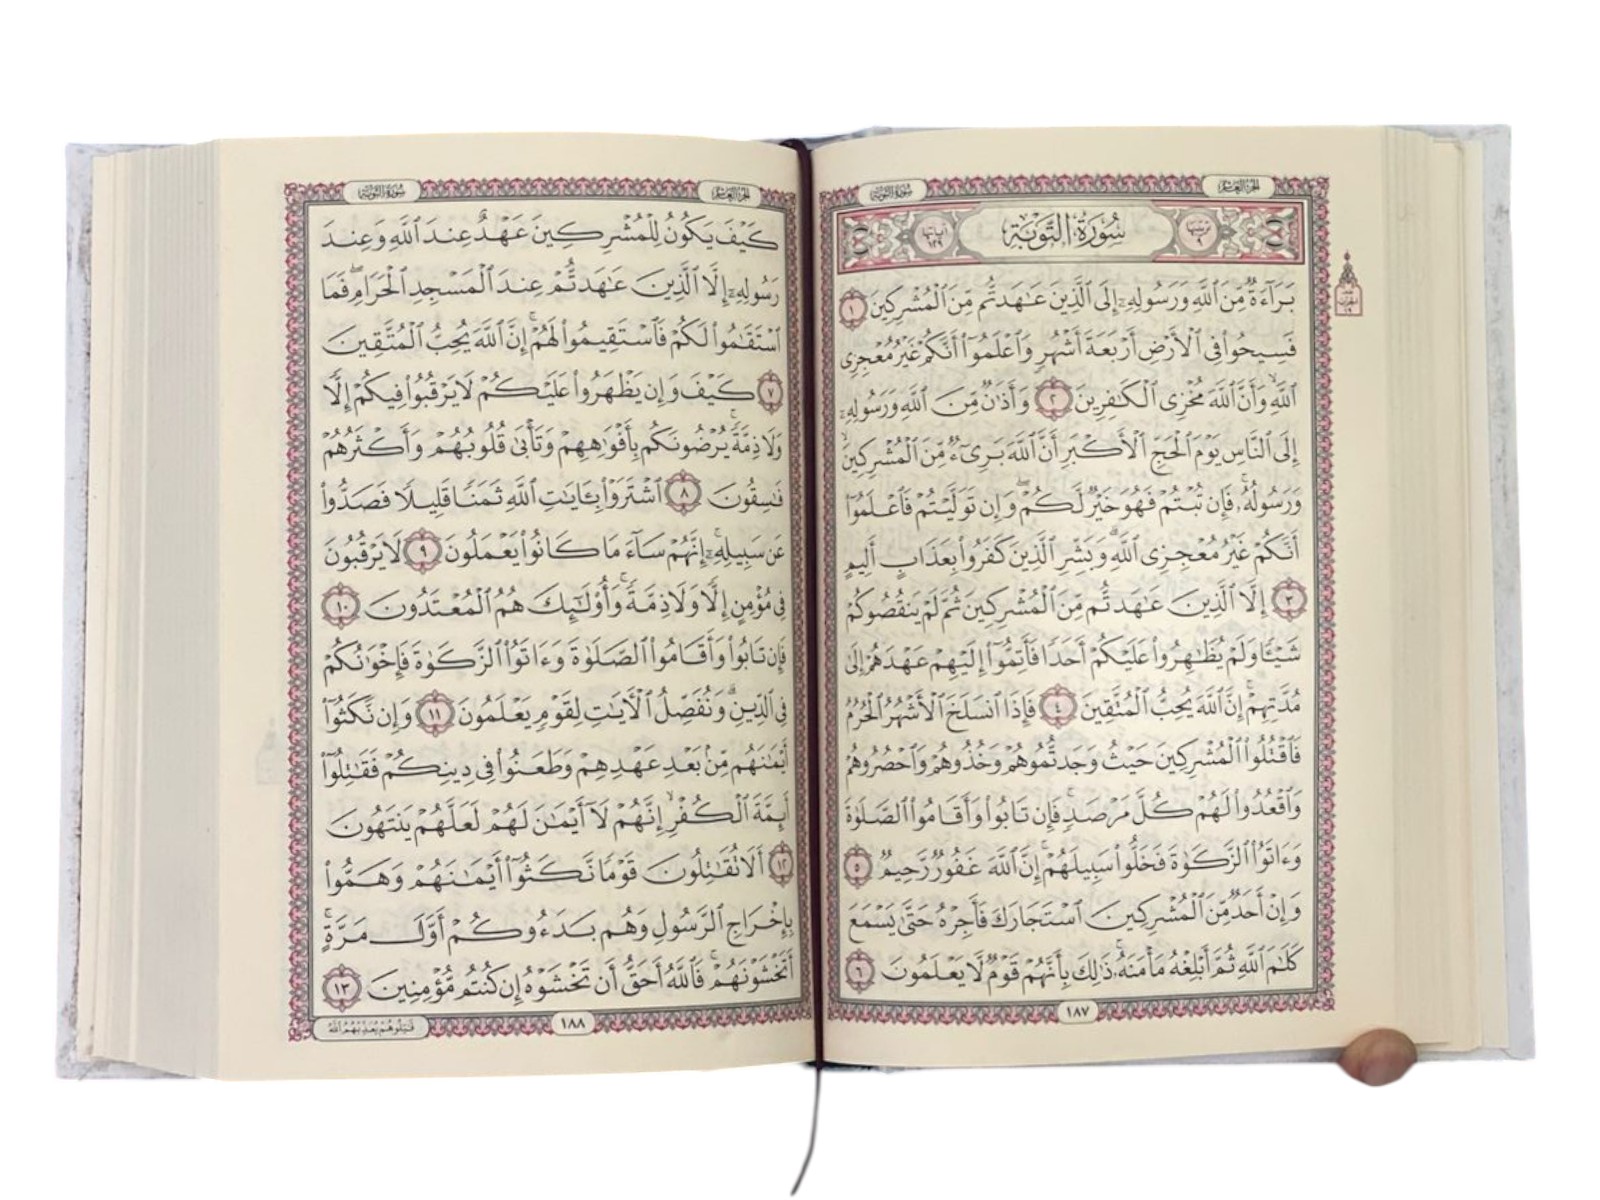 سُورَةُ التَّوْبَةِ
الجزء العاشر
سُورَةُ التَّوْبَةِ
ترتيبها ٩
آياتها ١٢٩
بَرَآءَةٌ مِّنَ ٱللَّهِ وَرَسُولِهِۦٓ إِلَى ٱلَّذِينَ عَٰهَدتُّم مِّنَ ٱلْمُشْرِكِينَ ١
فَسِيحُوا۟ فِى ٱلْأَرْضِ أَرْبَعَةَ أَشْهُرٍ وَٱعْلَمُوٓا۟ أَنَّكُمْ غَيْرُ مُعْجِزِى
ٱللَّهِ ۙ وَأَنَّ ٱللَّهَ مُخْزِى ٱلْكَٰفِرِينَ ٢ وَأَذَٰنٌ مِّنَ ٱللَّهِ وَرَسُولِهِۦٓ
إِلَى ٱلنَّاسِ يَوْمَ ٱلْحَجِّ ٱلْأَكْبَرِ أَنَّ ٱللَّهَ بَرِىٓءٌ مِّنَ ٱلْمُشْرِكِينَ ۙ
وَرَسُولُهُۥ ۚ فَإِن تُبْتُمْ فَهُوَ خَيْرٌ لَّكُمْ ۖ وَإِن تَوَلَّيْتُمْ فَٱعْلَمُوٓا۟
أَنَّكُمْ غَيْرُ مُعْجِزِى ٱللَّهِ ۗ وَبَشِّرِ ٱلَّذِينَ كَفَرُوا۟ بِعَذَابٍ أَلِيمٍ
٣ إِلَّا ٱلَّذِينَ عَٰهَدتُّم مِّنَ ٱلْمُشْرِكِينَ ثُمَّ لَمْ يَنقُصُوكُمْ
شَيْـًٔا وَلَمْ يُظَٰهِرُوا۟ عَلَيْكُمْ أَحَدًا فَأَتِمُّوٓا۟ إِلَيْهِمْ عَهْدَهُمْ إِلَىٰ
مُدَّتِهِمْ ۚ إِنَّ ٱللَّهَ يُحِبُّ ٱلْمُتَّقِينَ ٤ فَإِذَا ٱنسَلَخَ ٱلْأَشْهُرُ ٱلْحُرُمُ
فَٱقْتُلُوا۟ ٱلْمُشْرِكِينَ حَيْثُ وَجَدتُّمُوهُمْ وَخُذُوهُمْ وَٱحْصُرُوهُمْ
وَٱقْعُدُوا۟ لَهُمْ كُلَّ مَرْصَدٍ ۚ فَإِن تَابُوا۟ وَأَقَامُوا۟ ٱلصَّلَوٰةَ
وَءَاتَوُا۟ ٱلزَّكَوٰةَ فَخَلُّوا۟ سَبِيلَهُمْ ۚ إِنَّ ٱللَّهَ غَفُورٌ رَّحِيمٌ ٥
وَإِنْ أَحَدٌ مِّنَ ٱلْمُشْرِكِينَ ٱسْتَجَارَكَ فَأَجِرْهُ حَتَّىٰ يَسْمَعَ
كَلَٰمَ ٱللَّهِ ثُمَّ أَبْلِغْهُ مَأْمَنَهُۥ ۚ ذَٰلِكَ بِأَنَّهُمْ قَوْمٌ لَّا يَعْلَمُونَ ٦
١٨٧
الجزء العاشر
سُورَةُ التَّوْبَةِ
كَيْفَ يَكُونُ لِلْمُشْرِكِينَ عَهْدٌ عِندَ ٱللَّهِ وَعِندَ
رَسُولِهِۦٓ إِلَّا ٱلَّذِينَ عَٰهَدتُّمْ عِندَ ٱلْمَسْجِدِ ٱلْحَرَامِ ۖ فَمَا
ٱسْتَقَٰمُوا۟ لَكُمْ فَٱسْتَقِيمُوا۟ لَهُمْ ۚ إِنَّ ٱللَّهَ يُحِبُّ ٱلْمُتَّقِينَ
٧ كَيْفَ وَإِن يَظْهَرُوا۟ عَلَيْكُمْ لَا يَرْقُبُوا۟ فِيكُمْ إِلًّا
وَلَا ذِمَّةً ۚ يُرْضُونَكُم بِأَفْوَٰهِهِمْ وَتَأْبَىٰ قُلُوبُهُمْ وَأَكْثَرُهُمْ
فَٰسِقُونَ ٨ ٱشْتَرَوْا۟ بِـَٔايَٰتِ ٱللَّهِ ثَمَنًا قَلِيلًا فَصَدُّوا۟
عَن سَبِيلِهِۦٓ ۚ إِنَّهُمْ سَآءَ مَا كَانُوا۟ يَعْمَلُونَ ٩ لَا يَرْقُبُونَ
فِى مُؤْمِنٍ إِلًّا وَلَا ذِمَّةً ۚ وَأُو۟لَٰٓئِكَ هُمُ ٱلْمُعْتَدُونَ ١٠
فَإِن تَابُوا۟ وَأَقَامُوا۟ ٱلصَّلَوٰةَ وَءَاتَوُا۟ ٱلزَّكَوٰةَ فَإِخْوَٰنُكُمْ
فِى ٱلدِّينِ ۗ وَنُفَصِّلُ ٱلْـَٔايَٰتِ لِقَوْمٍ يَعْلَمُونَ ١١ وَإِن نَّكَثُوٓا۟
أَيْمَٰنَهُم مِّنۢ بَعْدِ عَهْدِهِمْ وَطَعَنُوا۟ فِى دِينِكُمْ فَقَٰتِلُوٓا۟
أَئِمَّةَ ٱلْكُفْرِ ۙ إِنَّهُمْ لَآ أَيْمَٰنَ لَهُمْ لَعَلَّهُمْ يَنتَهُونَ
١٢ أَلَا تُقَٰتِلُونَ قَوْمًا نَّكَثُوٓا۟ أَيْمَٰنَهُمْ وَهَمُّوا۟
بِإِخْرَاجِ ٱلرَّسُولِ وَهُم بَدَءُوكُمْ أَوَّلَ مَرَّةٍ ۚ
أَتَخْشَوْنَهُمْ ۚ فَٱللَّهُ أَحَقُّ أَن تَخْشَوْهُ إِن كُنتُم مُّؤْمِنِينَ ١٣
١٨٨
قَٰتِلُوهُمْ يُعَذِّبْهُمُ ٱللَّهُ